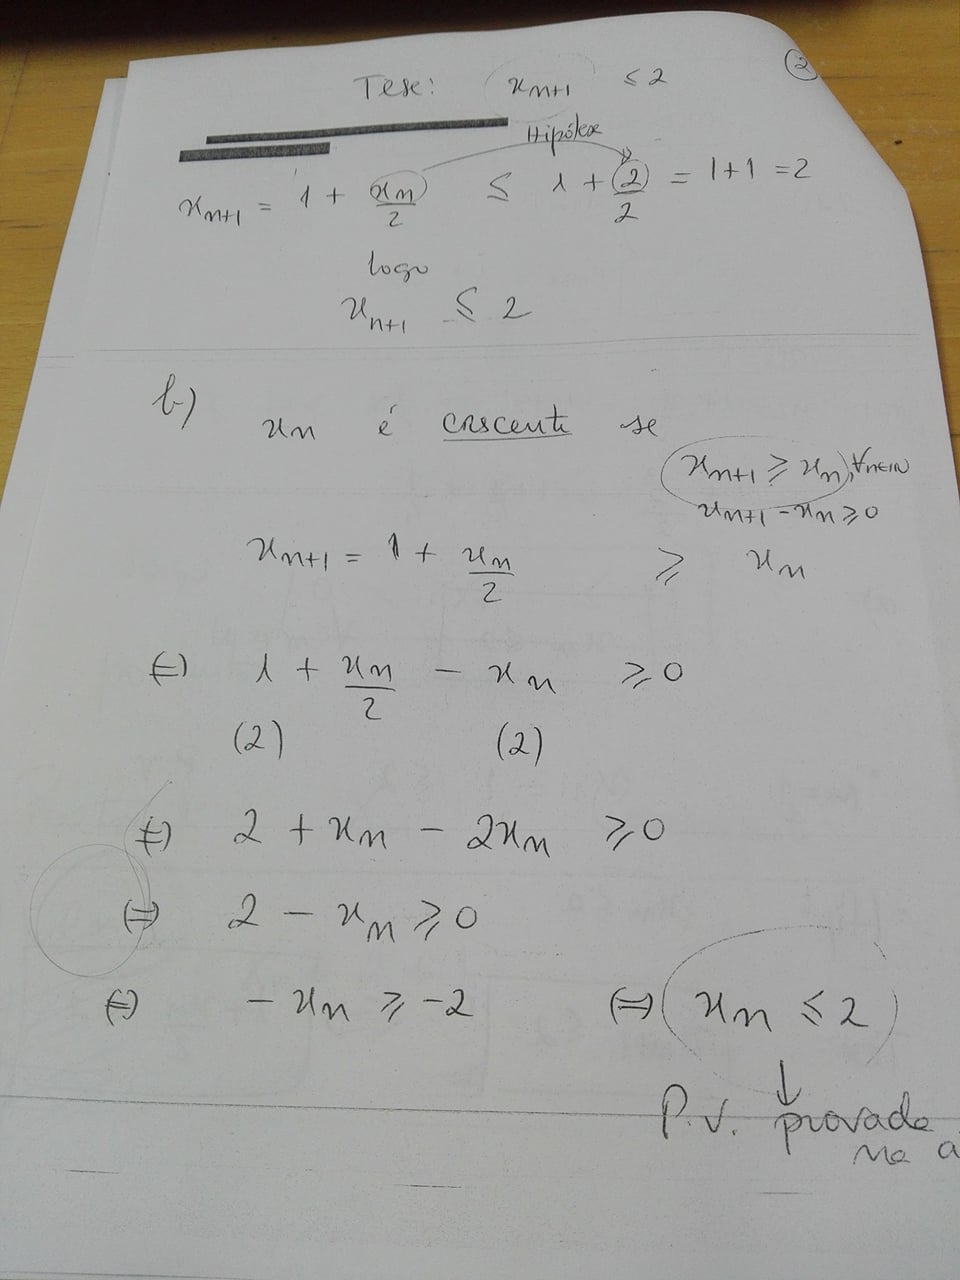 2
Tese: xn+1 ≤ 2
Hipótese
xn+1 = 1 + xn/2 ≤ 1 + 2/2 = 1+1 = 2
logo
xn+1 ≤ 2
b)
xn é crescente se
xn+1 ≥ xn, ∀n∈IN
xn+1 - xn ≥ 0
xn+1 = 1 + xn/2 ≥ xn
(=) 1 + xn/2 - xn ≥ 0
(2) (2)
(=) 2 + xn - 2xn ≥ 0
(=) 2 - xn ≥ 0
(=) - xn ≥ -2 (=) xn ≤ 2
P.V. provada
na a